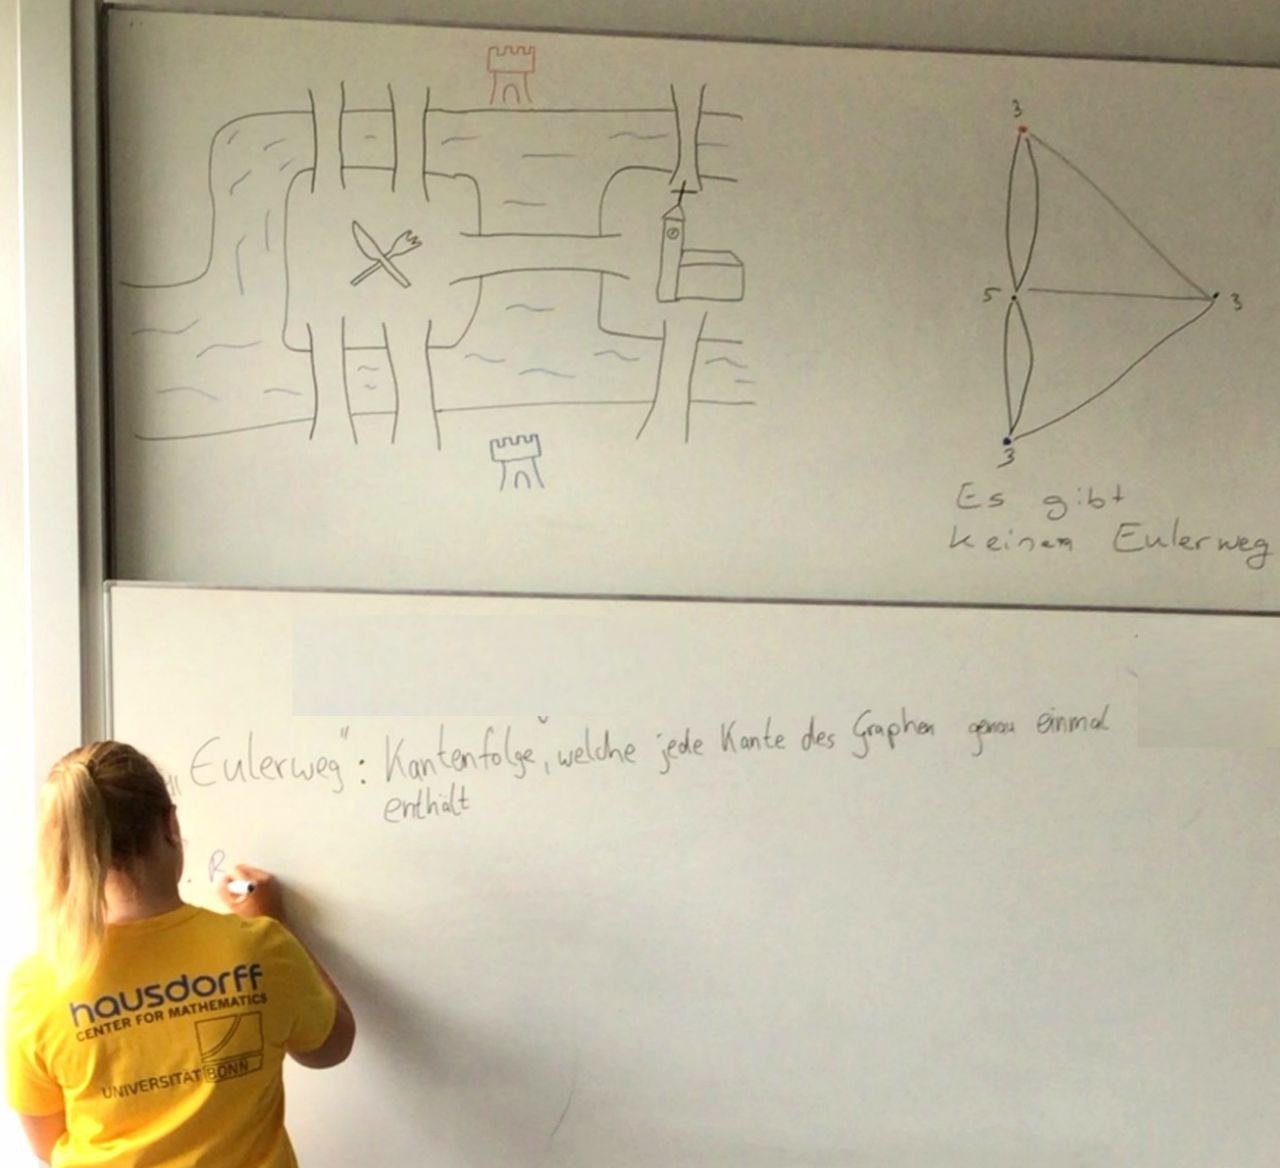 3
5
3
3
Es gibt
keinen Eulerweg
„Eulerweg": Kantenfolge, welche jede Kante des Graphen genau einmal
enthält
R
hausdorff
CENTER FOR MATHEMATICS
UNIVERSITÄT BONN